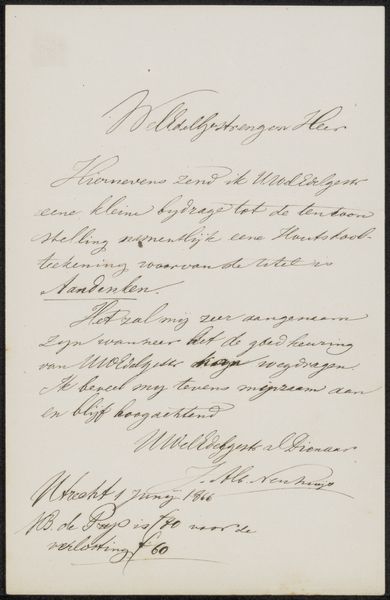 WelEdelGestrengen Heer
Hiernevens zend ik UWelEdelgestr
eene kleine bijdrage tot de tentoon
stelling namentlijk eene Houtskool-
teekening waarvan de titel is
Aandenken.
Het zal mij zeer aangenaam
zijn wanneer het de goedkeuring
van UWelEdelgestr wegdragen.
Ik beveel mij tevens aan
en blijf hoogachtend
UWelEdelgestr Dienaar
J. Alb. Neuhuys
Utrecht 1 Junij 1866
NB. de Prijs is ƒ 80 voor de
verloting ƒ 60